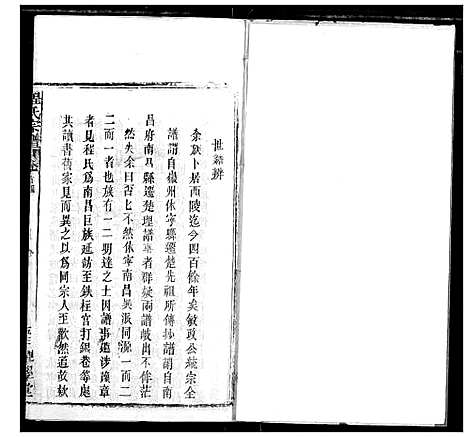 世系辨
余族卜居西陵迄今四百餘年矣敏政公統宗全
譜謂自徽州休寧縣遷楚先祖所傳抄譜謂自南
昌府南昌縣遷楚理譜事者群疑兩譜岐出不侔茫
然失余曰否否休寧南昌異派同源一而二
二而一者也族有一二明達之士因譜事遍涉豫章
者見程氏為南昌巨族延訪至鉄柱官打銀巷等處
其讀書舊家見而異之以為同宗人至歡然道故欵
程氏宗譜
理學堂